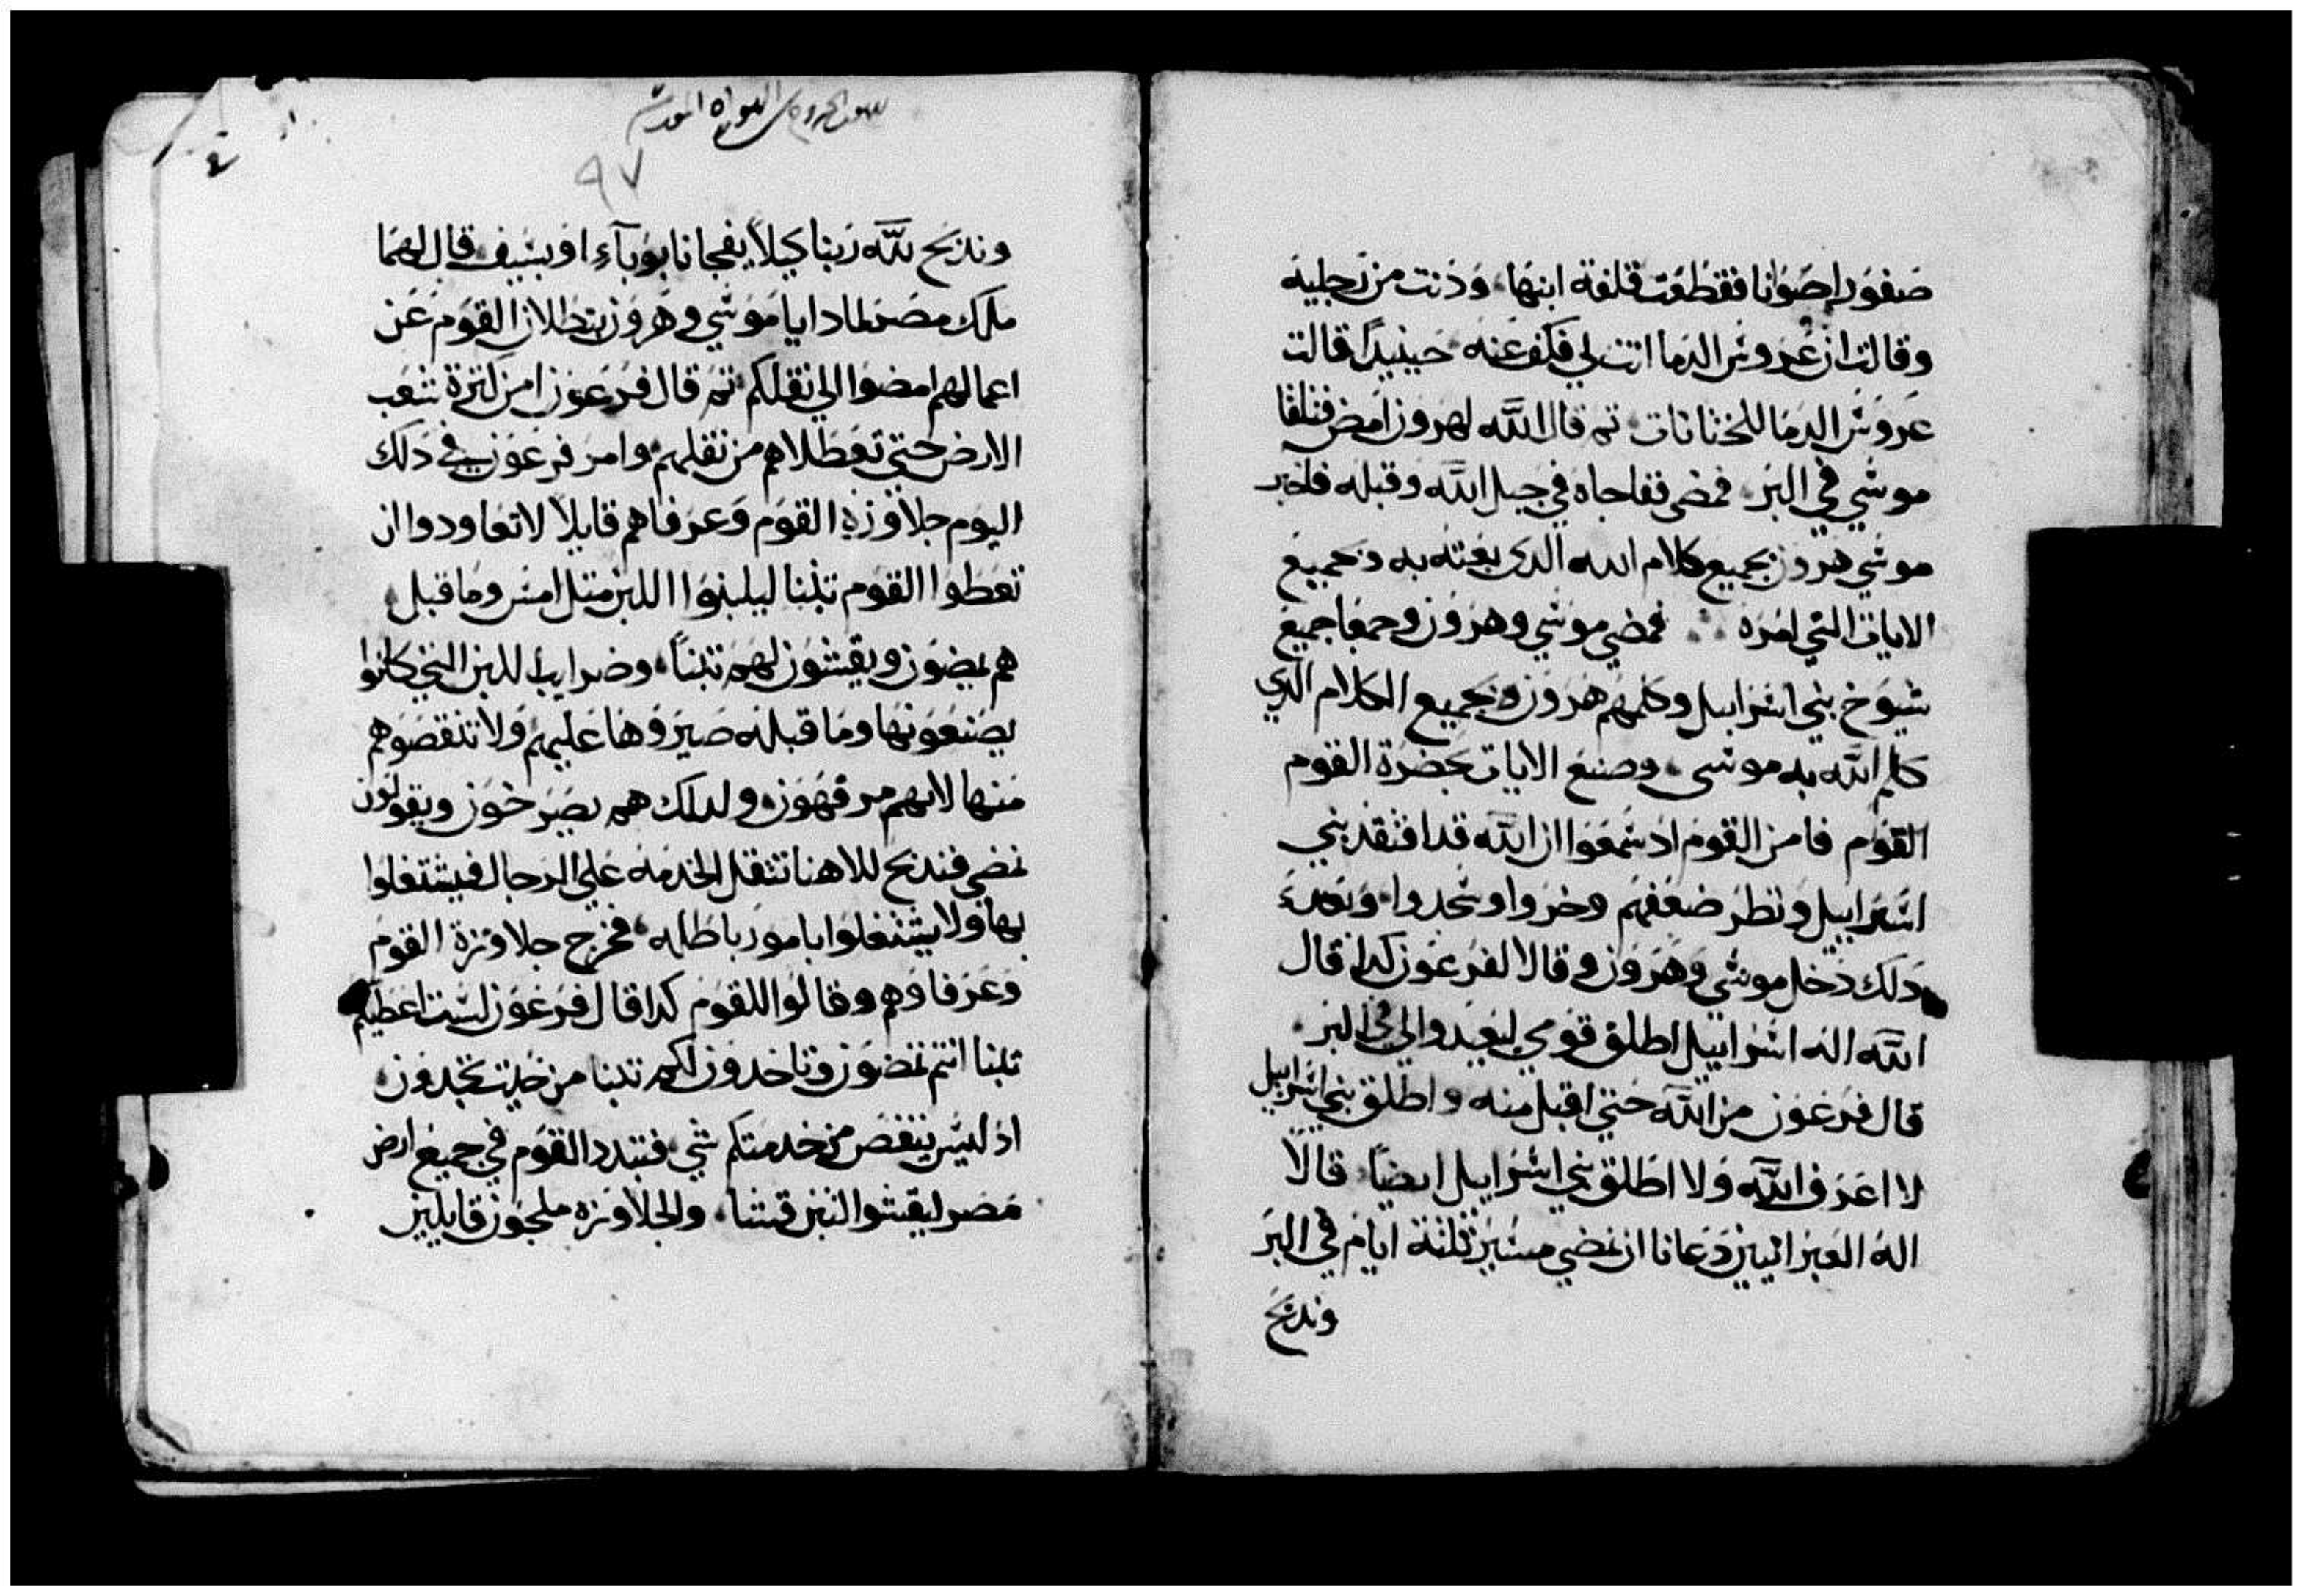 صفورا صوانا فقطعت قلفة ابنها ودنت من رجليه
وقالت ان عروس الدما انت لي فكف عنه حينيدًا قالت
عروس الدما للختانات تم قال الله لهرون امض فتلقا
موسي في البر فمضي ففاجاه في جبل الله وقبله فاخبر
موسي هرون بجميع كلام الله الدي بعته به وجميع
الايات التي امره فمضي موسي وهرون وجمعا جميع
شيوخ بني اسراييل وكلمهم هرون بجميع الكلام الدي
كلم الله به موسي وصنع الايات بحضرة القوم
القوم فامن القوم اد سمعوا ان الله قد افتقد بني
اسراييل ونظر ضعفهم وخروا وسجدوا وبعد
دلك دخل موسي وهرون وقالا لفرعون كدا قال
الله اله اسراييل اطلق قومي ليعيدوا لي في البر
قال فرعون من الله حتي اقبل منه واطلق بني اسراييل
لا اعرف الله ولا اطلق بني اسراييل ايضًا قالا
اله العبرانيين دعانا ان نمضي مسير تلتة ايام في البر
وندبح
٩٧
وندبح لله ربنا كيلا يفجانا بوباء او بسيف قال لهما
ملك مصر لمادا يا موسي وهرون تبطلان القوم عن
اعمالهم امضوا الي تقلكم تم قال فرعون امن كترة شعب
الارض حتي تعطلاهم من تقلهم وامر فرعون في دلك
اليوم جلاوزة القوم وعرفاهم قايلا لا تعاودوا ان
تعطوا القوم تبنا ليلبنوا اللبن متل امس وما قبل
هم يمضون ويقشون لهم تبنًا وضرايب اللبن التي كانوا
يصنعونها وما قبله صيروها عليهم ولا تنقصوهم
منها لانهم مرفهون ولدلك هم يصرخون ويقولون
نمضي فندبح للاهنا تتقل الخدمه علي الرجال فيشتغلوا
بها ولا يشتغلوا بامور باطله فخرج جلاوزة القوم
وعرفاوهم وقالوا للقوم كدا قال فرعون لست اعطيكم
تبنا انتم تمضون وتاخدون لكم تبنا من حيت تجدون
اد ليس ينقص من خدمتكم شي فتبدد القوم في جميع ارض
مصر ليقشوا التبن قشا والجلاوزه ملجون قايلين